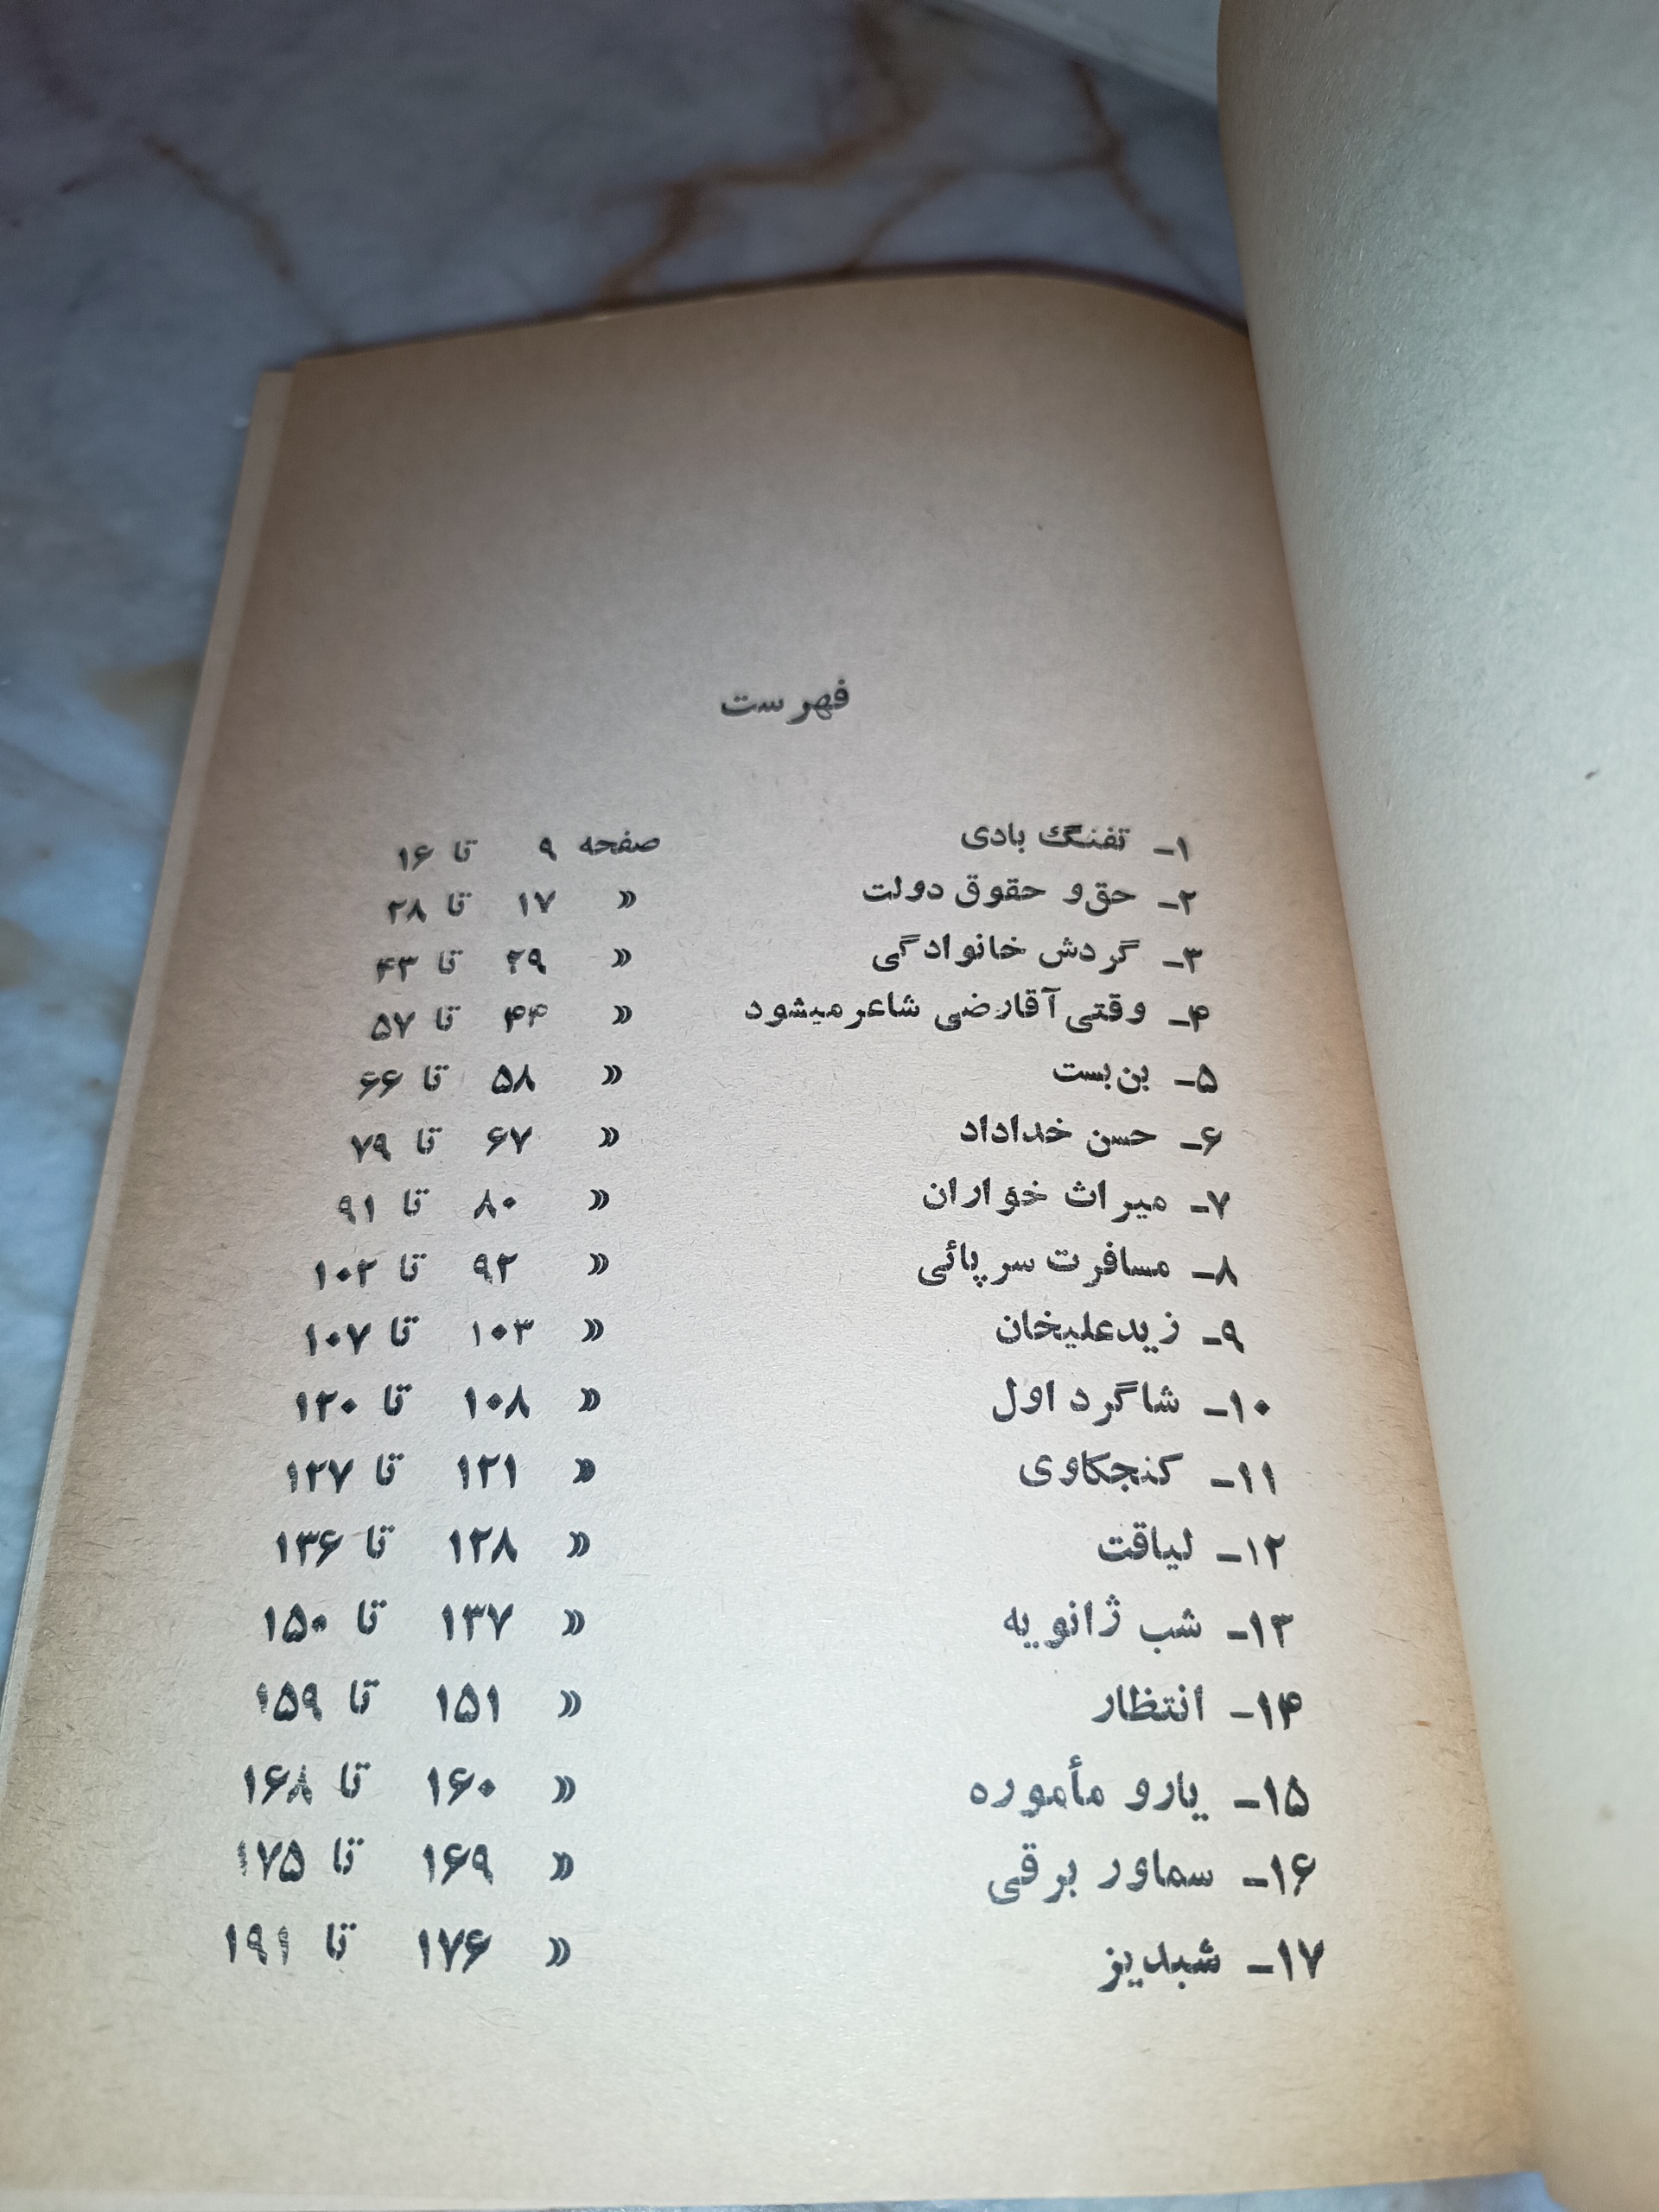 فهرست
۱- تفنگ بادی صفحه ۹ تا ۱۶
۲- حق و حقوق دولت » ۱۷ تا ۲۸
۳- گردش خانوادگی » ۲۹ تا ۴۳
۴- وقتی آقارضی شاعر میشود » ۴۴ تا ۵۷
۵- بن‌بست » ۵۸ تا ۶۶
۶- حسن خداداد » ۶۷ تا ۷۹
۷- میراث خواران » ۸۰ تا ۹۱
۸- مسافرت سرپائی » ۹۲ تا ۱۰۲
۹- زیدعلیخان » ۱۰۳ تا ۱۰۷
۱۰- شاگرد اول » ۱۰۸ تا ۱۲۰
۱۱- کنجکاوی » ۱۲۱ تا ۱۲۷
۱۲- لیاقت » ۱۲۸ تا ۱۳۶
۱۳- شب ژانویه » ۱۳۷ تا ۱۵۰
۱۴- انتظار » ۱۵۱ تا ۱۵۹
۱۵- یارو مأموره » ۱۶۰ تا ۱۶۸
۱۶- سماور برقی » ۱۶۹ تا ۱۷۵
۱۷- شبدیز » ۱۷۶ تا ۱۹۱